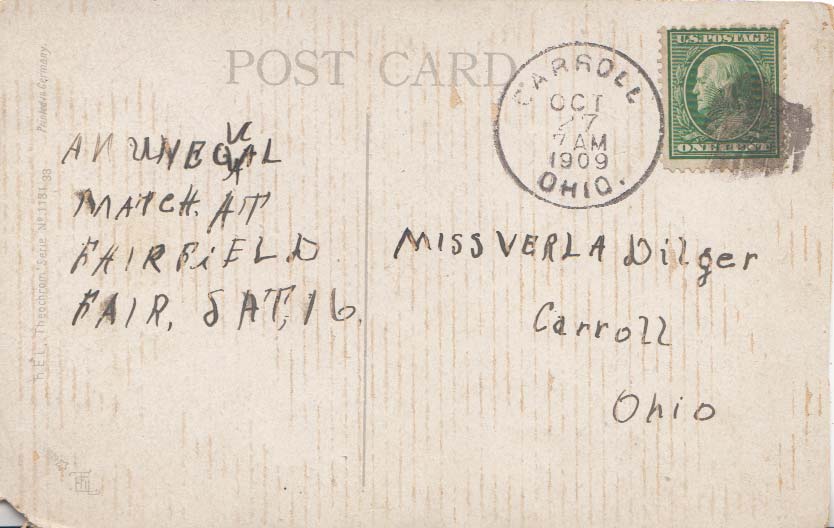 POST CARD
U.S. POSTAGE
ONE CENT
CARROLL
OCT
27
7 AM
1909
OHIO.
AN UNEQUAL
MATCH. AT
FAIRFIELD
FAIR, SAT, 16.
MISS VERLA Dilger
Carroll
Ohio
Printed in Germany.
T.E.L. Theochrom. Serie Nº 1181 38